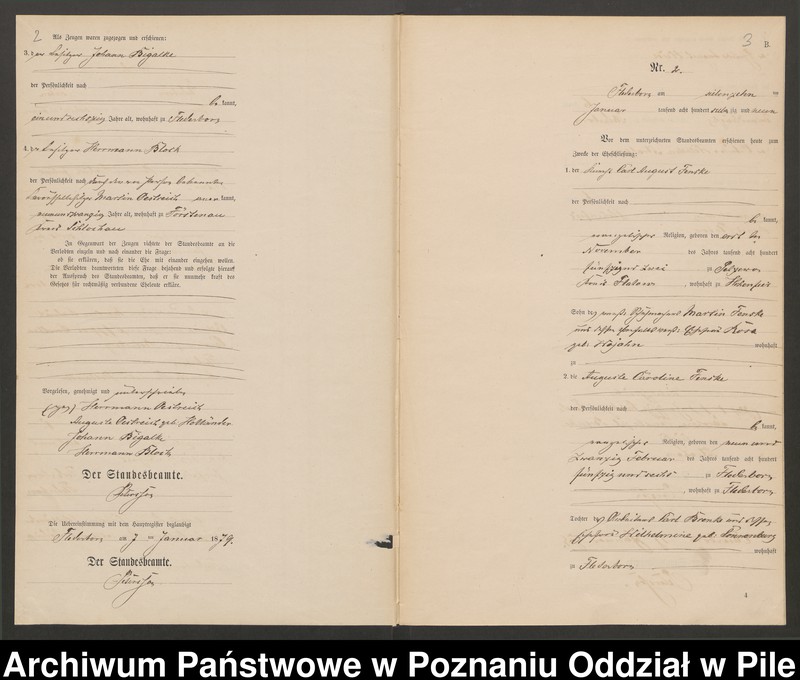 2 Als Zeugen waren zugezogen und erschienen:
3. der Besitzer Johann Bigalke
der Persönlichkeit nach
be kannt,
einundsechzig Jahre alt, wohnhaft zu Flederborn
4. der Besitzer Herrmann Block
der Persönlichkeit nach durch den von Person bekannten
Martin Oestreich kannt,
Jahre alt, wohnhaft zu Förstenau
Kreis Schlochau
In Gegenwart der Zeugen richtete der Standesbeamte an die
Verlobten einzeln und nach einander die Frage:
ob sie erklären, daß sie die Ehe mit einander eingehen wollen.
Die Verlobten beantworteten diese Frage bejahend und erfolgte hierauf
der Ausspruch des Standesbeamten, daß er sie nunmehr kraft des
Gesetzes für rechtmäßig verbundene Eheleute erkläre.
Vorgelesen, genehmigt und unterschrieben
(gez) Herrmann Oestreich
Auguste Oestreich geb Holländer
Johann Bigalke
Herrmann Block
Der Standesbeamte.
Die Uebereinstimmung mit dem Hauptregister beglaubigt
Flederborn am 7 ten Januar 1879.
Der Standesbeamte.
3 B.
Nr. 2.
Flederborn am ten
Januar tausend acht hundert siebenzig und neun
Vor dem unterzeichneten Standesbeamten erschienen heute zum
Zwecke der Eheschließung:
1. der Knecht Carl August Fenske
der Persönlichkeit nach
be kannt,
evangelischer Religion, geboren den
November des Jahres tausend acht hundert
fünfzig und zwei zu
Kreis Flatow, wohnhaft zu
Sohn des Martin Fenske
und dessen Ehefrau Rosa
geb. Wojahn wohnhaft
zu
2. die Auguste Caroline Fenske
der Persönlichkeit nach
be kannt,
evangelischer Religion, geboren den neun und
zwanzig Februar des Jahres tausend acht hundert
fünfzig und sechs zu Flederborn
, wohnhaft zu Flederborn
Tochter des Arbeiters Carl und dessen
Ehefrau Wilhelmine geb. Sonnenburg
wohnhaft
zu Flederborn
4
Archiwum Państwowe w Poznaniu Oddział w Pile